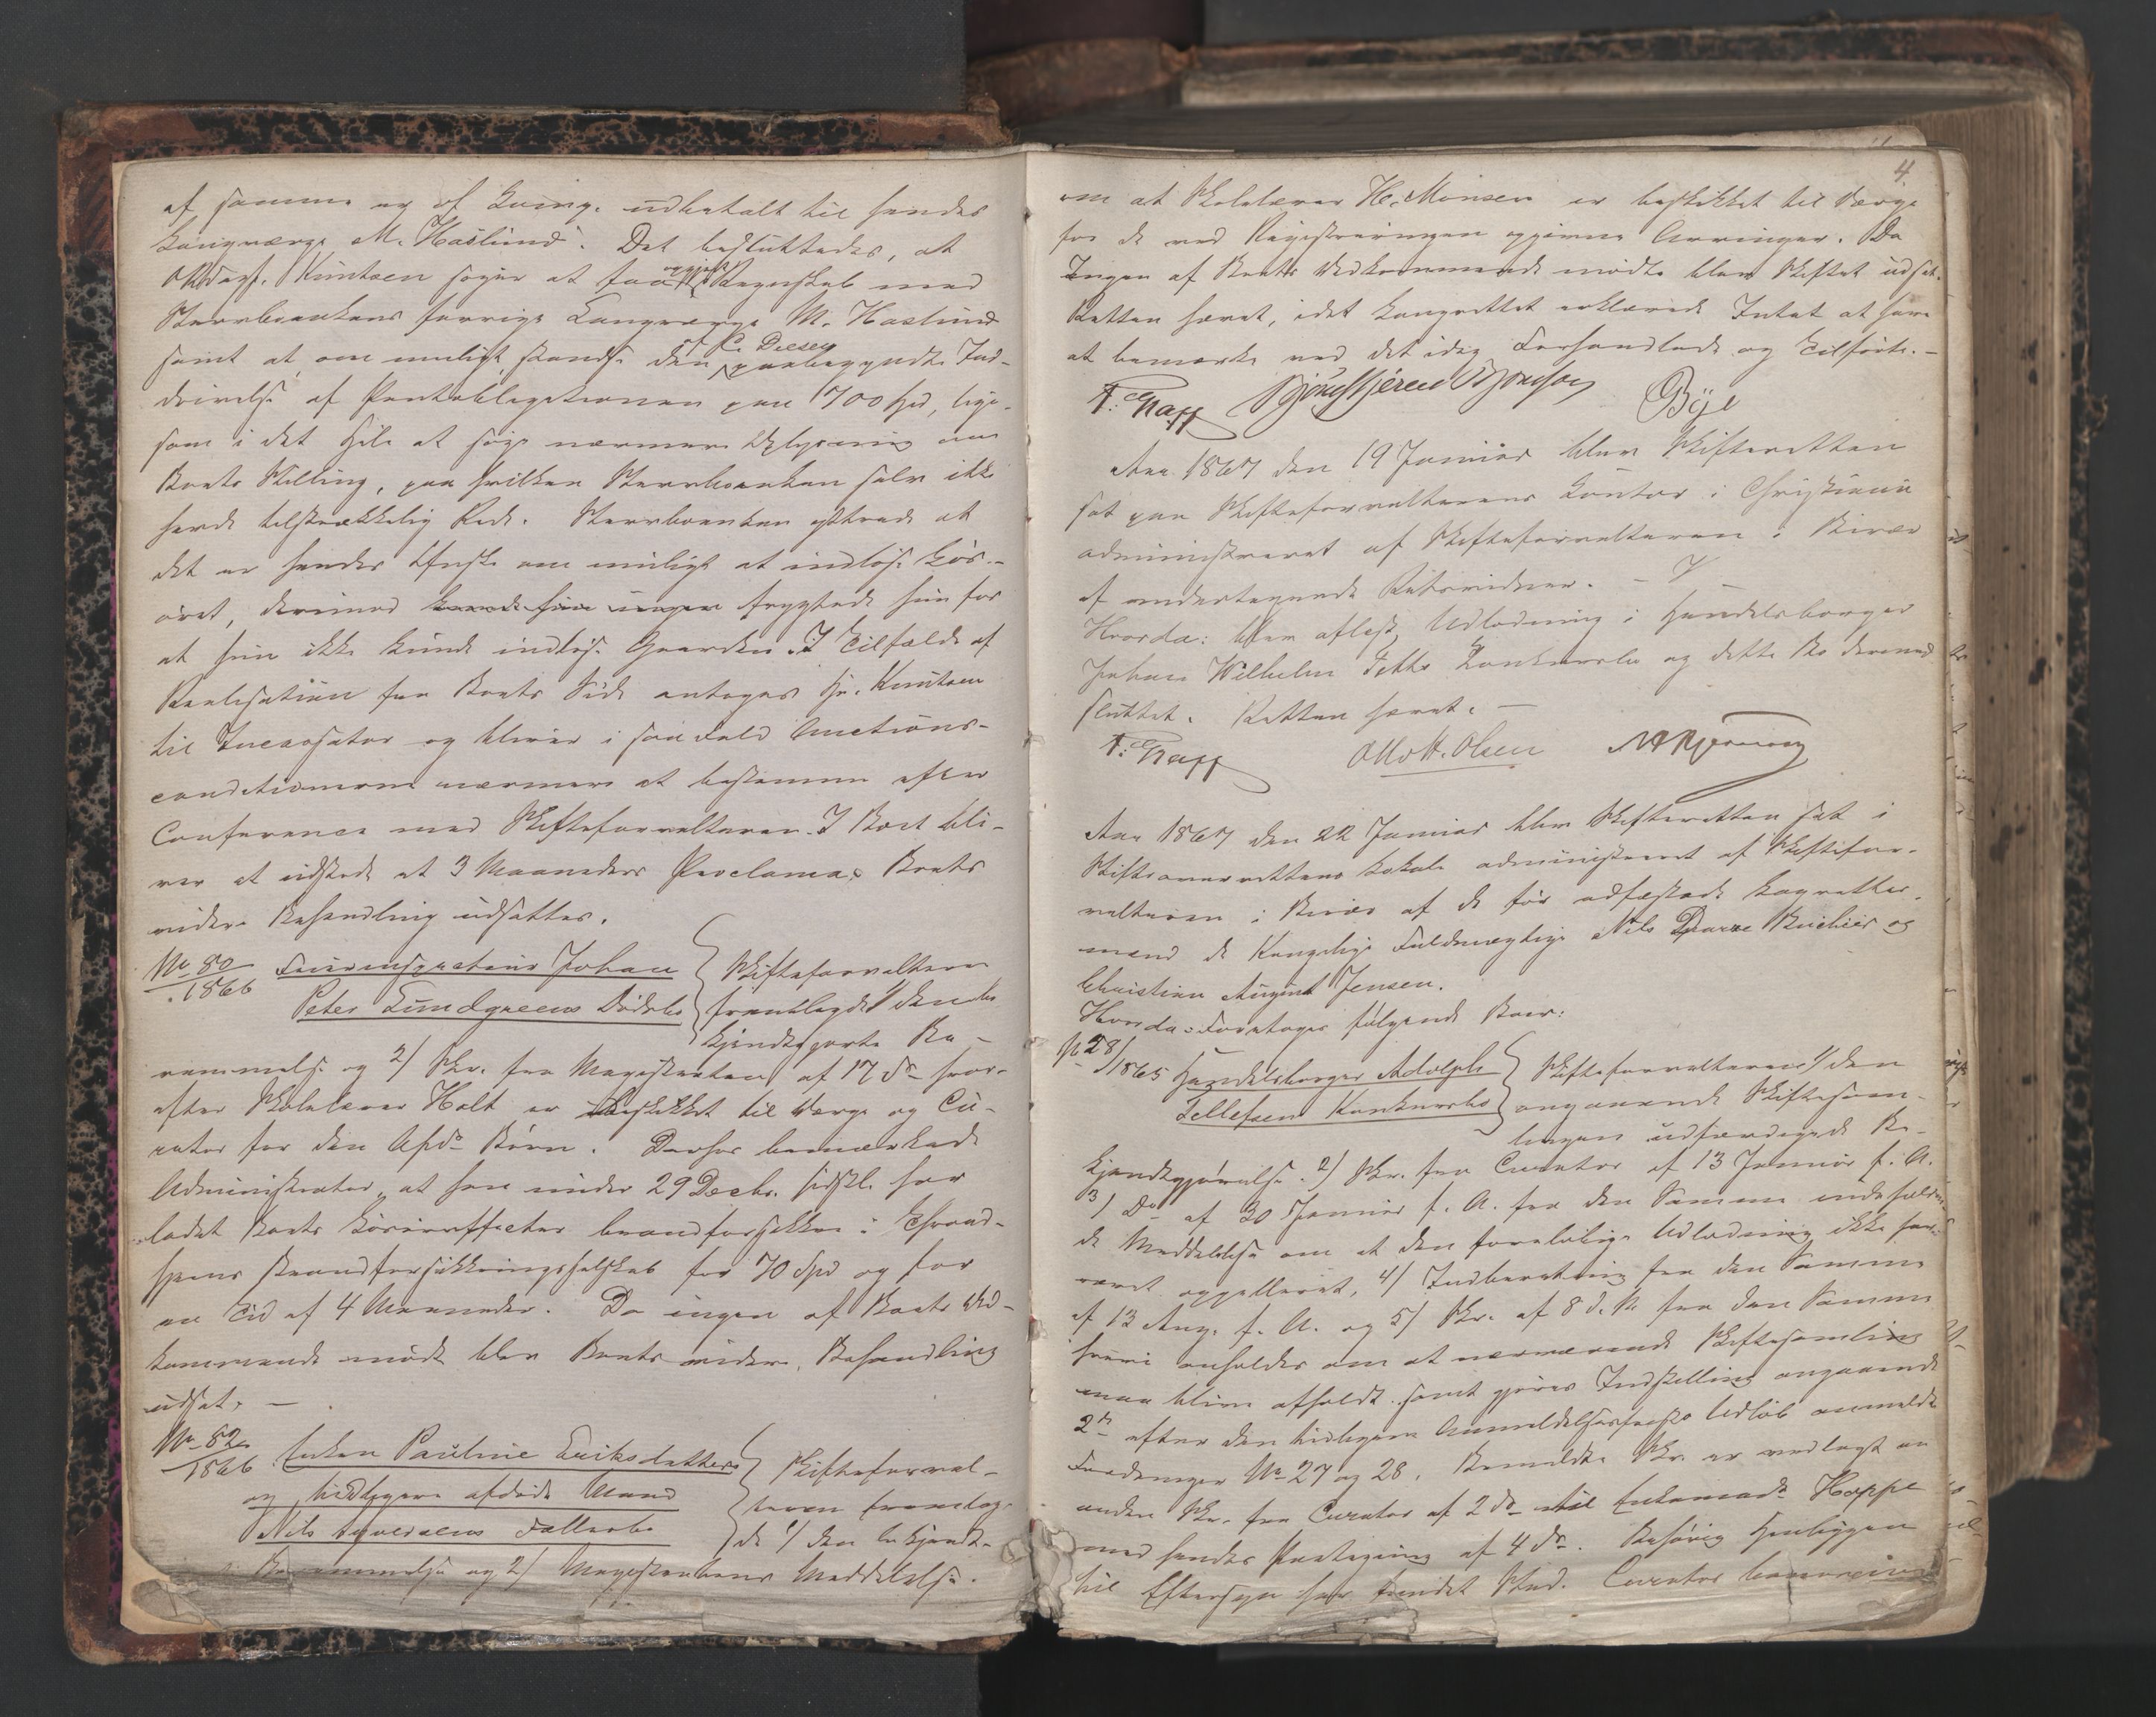 af samme og af Kving. udbetalt til hendes
Laugværge M. Haslund. Det besluttedes, at
Knutsen søger at faa opgjort Regnskab med
Stervboenkens forrige Laugværge M. Haslund
samt at, om muligt, standse den af C. paabegyndte Ind-
drivelse af Pantobligationen paa 1700 Spd, lige-
som i det Hele at søge nærmere Oplysning om
Boets Stilling, paa hvilken Stervboenken selv ikke
havde tilstrækkelig Rede. Stervboenken yttrede at
det er hendes Ønske om muligt at indløse Løs-
øret, derimod frygtede hun for
at hun ikke kunde indløse Gaarden. I Tilfælde af
Realisation fra Boets Side antages Hr. Knutsen
til Incassator og bliver i saa Fald Auctions-
conditionerne nærmere at bestemme efter
Conference med Skifteforvalteren. I Boet bli-
ver at udstede et 3 Maaneders Proclama. Boets
videre Behandling udsættes.
No 80
1866
Johan
Peter Lundgreens Dødsbo
Skifteforvalteren
fremlagde 1/ den be-
kjendtgjorte Be-
rammelse og 2/ Skr. fra Magistraten af 17 ds hvor-
efter Skolelærer Holt er beskikket til Værge og Cu-
rator for den Afds Børn. Derhos bemærkede
Administrator, at han under 29 Decbr. sidstl. har
ladet Boets Løsøreeffecter brandforsikkre i
Brandforsikkringsselskab for 70 Spd og for
en Tid af 4 Maaneder. Da ingen af Boets Ved-
kommende mødte blev Boets videre Behandling
udsat. —
No 82
1866
Enken Pauline Eriksdatters
og tidligere afdøde Mand
Nils Fællesbo
Skifteforval-
teren fremlag-
de 1/ den bekjendt-
Berammelse og 2/ Magistratens Meddelelse
4
om at Skolelærer H. Monsen er beskikket til Værge
for de ved Registreringen opgivne Arvinger. Da
Ingen af Boets Vedkommende mødte blev Skiftet udsat.
Retten hævet, idet Laugrettet erklærede Intet at have
at bemærke ved det idag Forhandlede og Tilførte. —
Bije
Aar 1867 den 19 Januar blev Skifteretten
sat paa Skifteforvalterens Kontor i Christiania
administreret af Skifteforvalteren i Overvær
af undertegnede Retsvidner. —
Hvorda: blev aflagt Udlodning i Handelsborger
Johan Wilhelm Konkursbo og dette Bo dermed
sluttet. Retten hævet. —
Otto H. Olsen
Aar 1867 den 22 Januar blev Skifteretten sat i
Stiftsoverrettens Lokale administreret af Skiftefor-
valteren i Overvær af de før edfæstede Laugrettes-
mænd de Kongelige Fuldmægtige Nils Buchier og
Christian August Jensen.
Hvorda: Foretoges følgende Boer:
No 28/1865
Handelsborger Adolph
Tellefsens Konkursbo
Skifteforvalteren 1/ den
angaaende Skiftesam-
lingen udfærdigede Be-
kjendtgjørelse. 2/ Skr. fra Curator af 13 Januar f. A.
3/ Do af 30 Januar f. A. fra den Samme indehølden-
de Meddelelse om at den foreløbige Udlodning ikke har
været appelleret, 4/ Indberetning fra den Samme
af 13 Aug. f. A. og 5/ Skr. af 8 d. M. fra den Samme
hvori anholdes om at nærværende Skiftesamling
maa blive afholdt samt gjøres Indstilling angaaende
2de efter den tidligere Anmeldelsesfrists Udløb anmeldte
Fordringer No 27 og 28. Bemeldte Skr. er vedlagt en
anden Skr. fra Curator af 2 ds til Enkemadm Hoppe
med hendes Paategning af 4 ds. Behørig Henliggen
til Eftersyn har fundet Sted. Curator